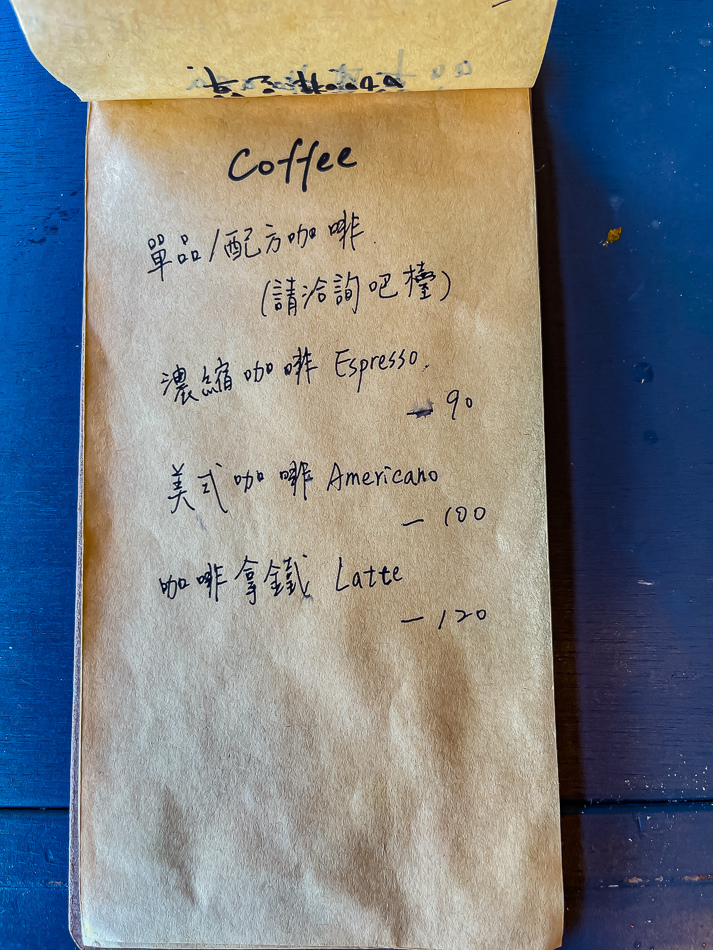 Coffee
單品/配方咖啡
(請洽詢吧檯)
濃縮咖啡 Espresso
- 90
美式咖啡 Americano
- 100
咖啡拿鐵 Latte
- 120